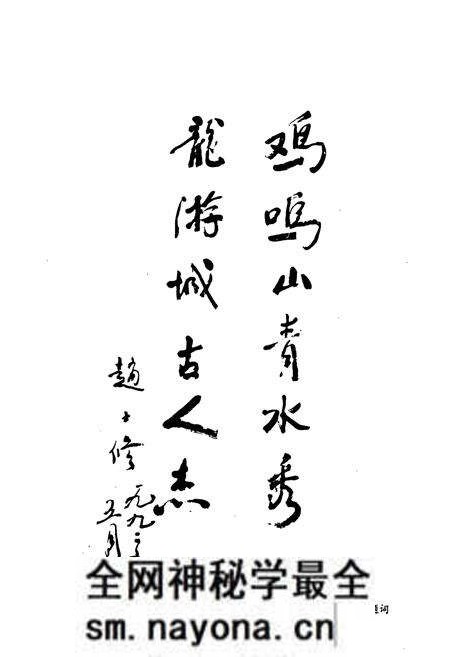 鸡鸣山青水秀
龍游城古人杰
趙士修
一九九三
五月
全网神秘学最全
sm.nayona.cn
词